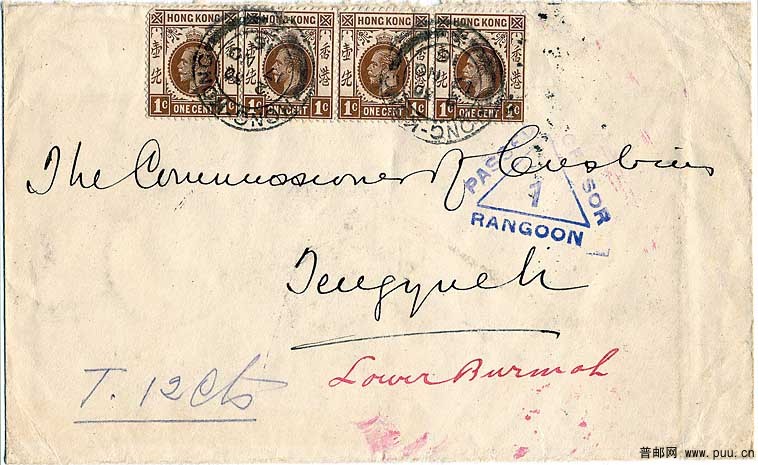 HONG KONG HONG KONG HONG KONG HONG KONG
壹先 香港 壹先 香港 壹先 香港 壹先 香港
1c ONE CENT 1c 1c ONE CENT 1c 1c ONE CENT 1c 1c ONE CENT 1c
The Commissioner of Customs
PASSED CENSOR
1
RANGOON
Tengyueh
Lower Burmah
T. 12 Cts
普邮网 www.puu.cn